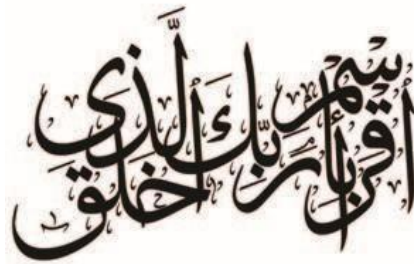 اقرأ باسم ربك الذى خلق